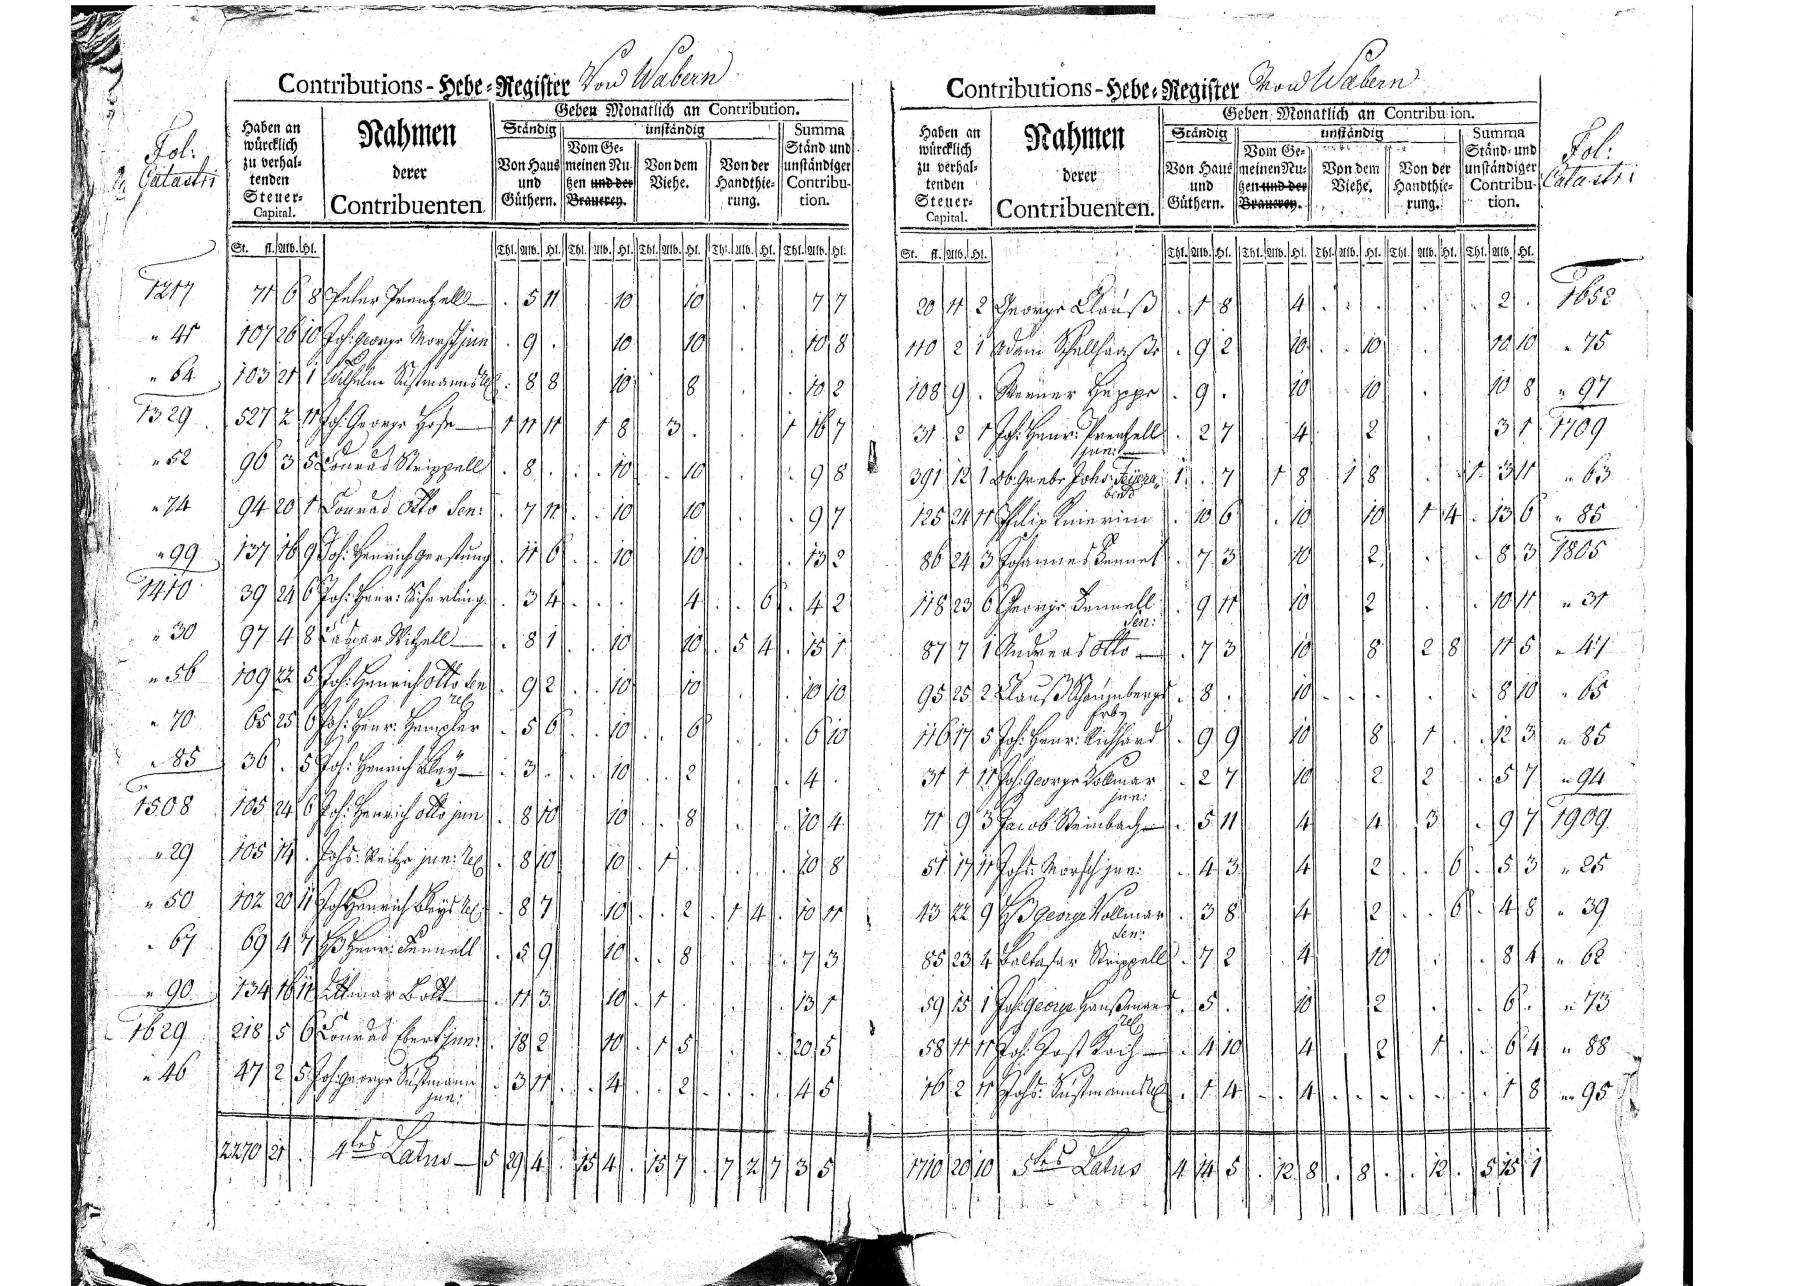 Contributions-Hebe-Register Von Wabern
Fol: Catastri
Haben an würcklich zu verhaltenden Steuer-Capital.
Nahmen derer Contribuenten.
Geben Monatlich an Contribution.
Ständig
unständig
Von Haus und Güthern.
Vom Gemeinen Nutzen und der Brauerey.
Von dem Viehe.
Von der Handthierung.
Summa Ständ- und unständiger Contribution.
St. fl. Alb. Hl. Thl. Alb. Hl. Thl. Alb. Hl. Thl. Alb. Hl. Thl. Alb. Hl. Thl. Alb. Hl.
1217 71 6 8 Peter Prentzell . 5 11 10 10 . 7 7
" 41 107 26 10 Joh: George Morsch jun . 9 . 10 10 . 10 8
" 64 103 21 1 Wilhelm Sustmanns Rel . 8 8 10 8 . 10 2
1329 527 2 11 Joh: George Hose 1 11 11 1 8 3 . 1 16 7
" 52 96 3 5 Conrad Strippell . 8 . 10 10 . 9 8
" 74 94 20 1 Conrad Otto Sen: . 7 11 10 10 . 9 7
" 99 137 16 9 Joh: Henrich Gerstung . 11 6 10 10 . 13 2
1410 39 24 6 Joh: Henr: Scherling . 3 4 . 4 6 . 4 2
" 30 97 4 8 Caspar Witzell . 8 1 10 10 5 4 . 15 1
" 56 109 22 5 Joh: Henrich Otto Sen Rel . 9 2 10 10 . 10 10
" 70 65 25 6 Joh: Henr: Hempler . 5 6 10 6 . 6 10
" 85 36 . 5 Joh: Henrich Bley . 3 . 10 2 . 4 .
1508 105 24 6 Joh: Henrich Otto jun . 8 10 10 8 . 10 4
" 29 105 14 . Johs: jun: Rel . 8 10 10 1 . 10 8
" 50 102 20 11 Joh Henrich Bleys Rel . 8 7 10 2 1 4 . 10 11
" 67 69 4 7 Henr: Fennell . 5 9 10 8 . 7 3
" 90 134 16 11 Dittmar Bott . 11 3 10 1 . 13 1
1629 218 5 6 Conrad Ebert jun: . 18 2 10 1 5 . 20 5
" 46 47 2 5 Joh: George Sustmann jun: . 3 11 4 2 . 4 5
2270 21 . 4tes Latus 5 29 4 . 15 4 . 15 7 . 7 2 7 3 5
Contributions-Hebe-Register Von Wabern
Haben an würcklich zu verhaltenden Steuer-Capital.
Nahmen derer Contribuenten.
Geben Monatlich an Contribution.
Ständig
unständig
Von Haus und Güthern.
Vom Gemeinen Nutzen und der Brauerey.
Von dem Viehe.
Von der Handthierung.
Summa Ständ- und unständiger Contribution.
Fol: Catastri
St. fl. Alb. Hl. Thl. Alb. Hl. Thl. Alb. Hl. Thl. Alb. Hl. Thl. Alb. Hl. Thl. Alb. Hl.
20 11 2 George Clauß . 1 8 4 . 2 . 1652
110 2 1 Adam Schellhaaße . 9 2 10 10 . 10 10 " 75
108 9 . Werner Heppe . 9 . 10 10 . 10 8 " 97
31 2 1 Joh: Henr: Prentzell jun: . 2 7 4 2 . 3 1 1709
391 12 1 Ob: Grebe Johs: Feyerabend 1 . 7 1 8 1 8 1 3 11 " 63
125 24 11 Philip Knierim . 10 6 10 10 1 4 . 13 6 " 85
86 24 3 Johannes Fennel . 7 3 10 2 . 8 3 1805
118 23 6 George Fennell Sen: . 9 11 10 2 . 10 11 " 31
87 7 1 Andreas Otto . 7 3 10 8 2 8 11 5 " 47
95 25 2 Clauß Schaumbergs Erbe . 8 . 10 . 8 10 " 65
116 17 5 Joh: Henr: Richhard . 9 9 10 8 1 . 12 3 " 85
31 1 11 Joh: George Vollmar jun: . 2 7 10 2 2 . 5 7 " 94
71 9 3 Jacob Steinbach . 5 11 4 4 3 . 9 7 1909
51 17 11 Johs: Morsch jun: . 4 3 4 2 6 . 5 3 " 25
43 22 9 George Vollmar Sen: . 3 8 4 2 6 . 4 8 " 39
85 23 4 Baltasar Strippell . 7 2 4 10 . 8 4 " 62
59 15 1 Joh: George Haußmans Rel . 5 . 10 2 . 6 . " 73
58 11 11 Joh: Jost Koch . 4 10 4 2 1 . 6 4 " 88
16 2 11 Johs: Sustmanns Rel . 1 4 4 . 1 8 " 95
1710 20 10 5tes Latus 4 14 5 . 12 8 . 8 . . 12 . 5 15 1